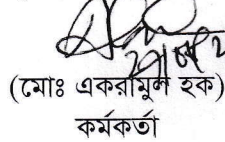 (মোঃ একরামুল হক)
কর্মকর্তা